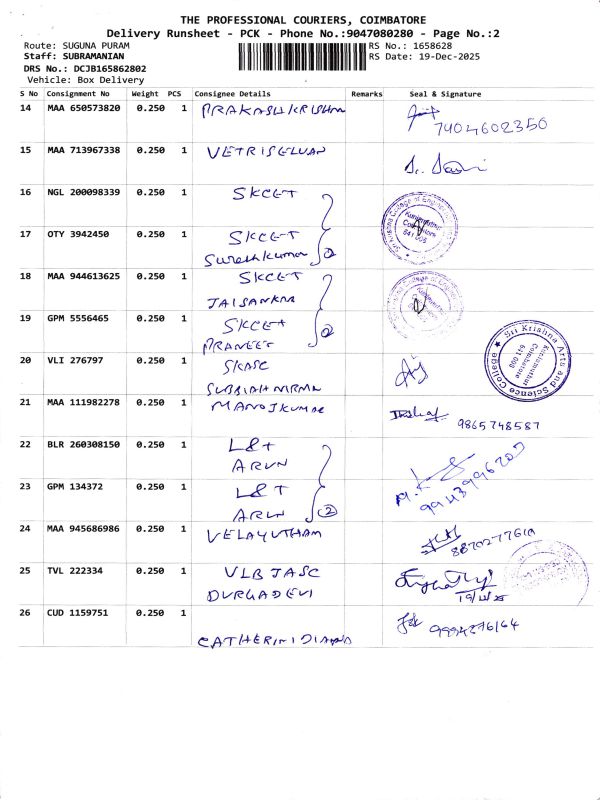 THE PROFESSIONAL COURIERS, COIMBATORE
Delivery Runsheet - PCK - Phone No.:9047080280 - Page No.:2
Route: SUGUNA PURAM
RS No.: 1658628
Staff: SUBRAMANIAN
RS Date: 19-Dec-2025
DRS No.: DCJB165862802
Vehicle: Box Delivery
S No Consignment No Weight PCS Consignee Details Remarks Seal & Signature
14 MAA 650573820 0.250 1 PRAKASH KRISHNA
7404602350
15 MAA 713967338 0.250 1 VETRISELVAN
16 NGL 200098339 0.250 1 SKCET
Sri Krishna College of Engineering
Kuniamuthur
Coimbatore
641 008
17 OTY 3942450 0.250 1 SKCET
Sureshkumar 2
18 MAA 944613625 0.250 1 SKCET
JAISANKAR
19 GPM 5556465 0.250 1 SKCET
PRANEET 2
20 VLI 276797 0.250 1 SKASC
SUBBIAHMRMN
Sri Krishna Arts and Science College
Kuniamuthur
Coimbatore
641 008
21 MAA 111982278 0.250 1 MANOJKUMAR
9865748587
22 BLR 260308150 0.250 1 L&T
ARUN
23 GPM 134372 0.250 1 L&T
ARUN 2
9943996207
24 MAA 945686986 0.250 1 VELAYUTHAM
8870277619
25 TVL 222334 0.250 1 VLB JASC
DURGADEVI
19/12/25
26 CUD 1159751 0.250 1
CATHERINDIANA
9994276164